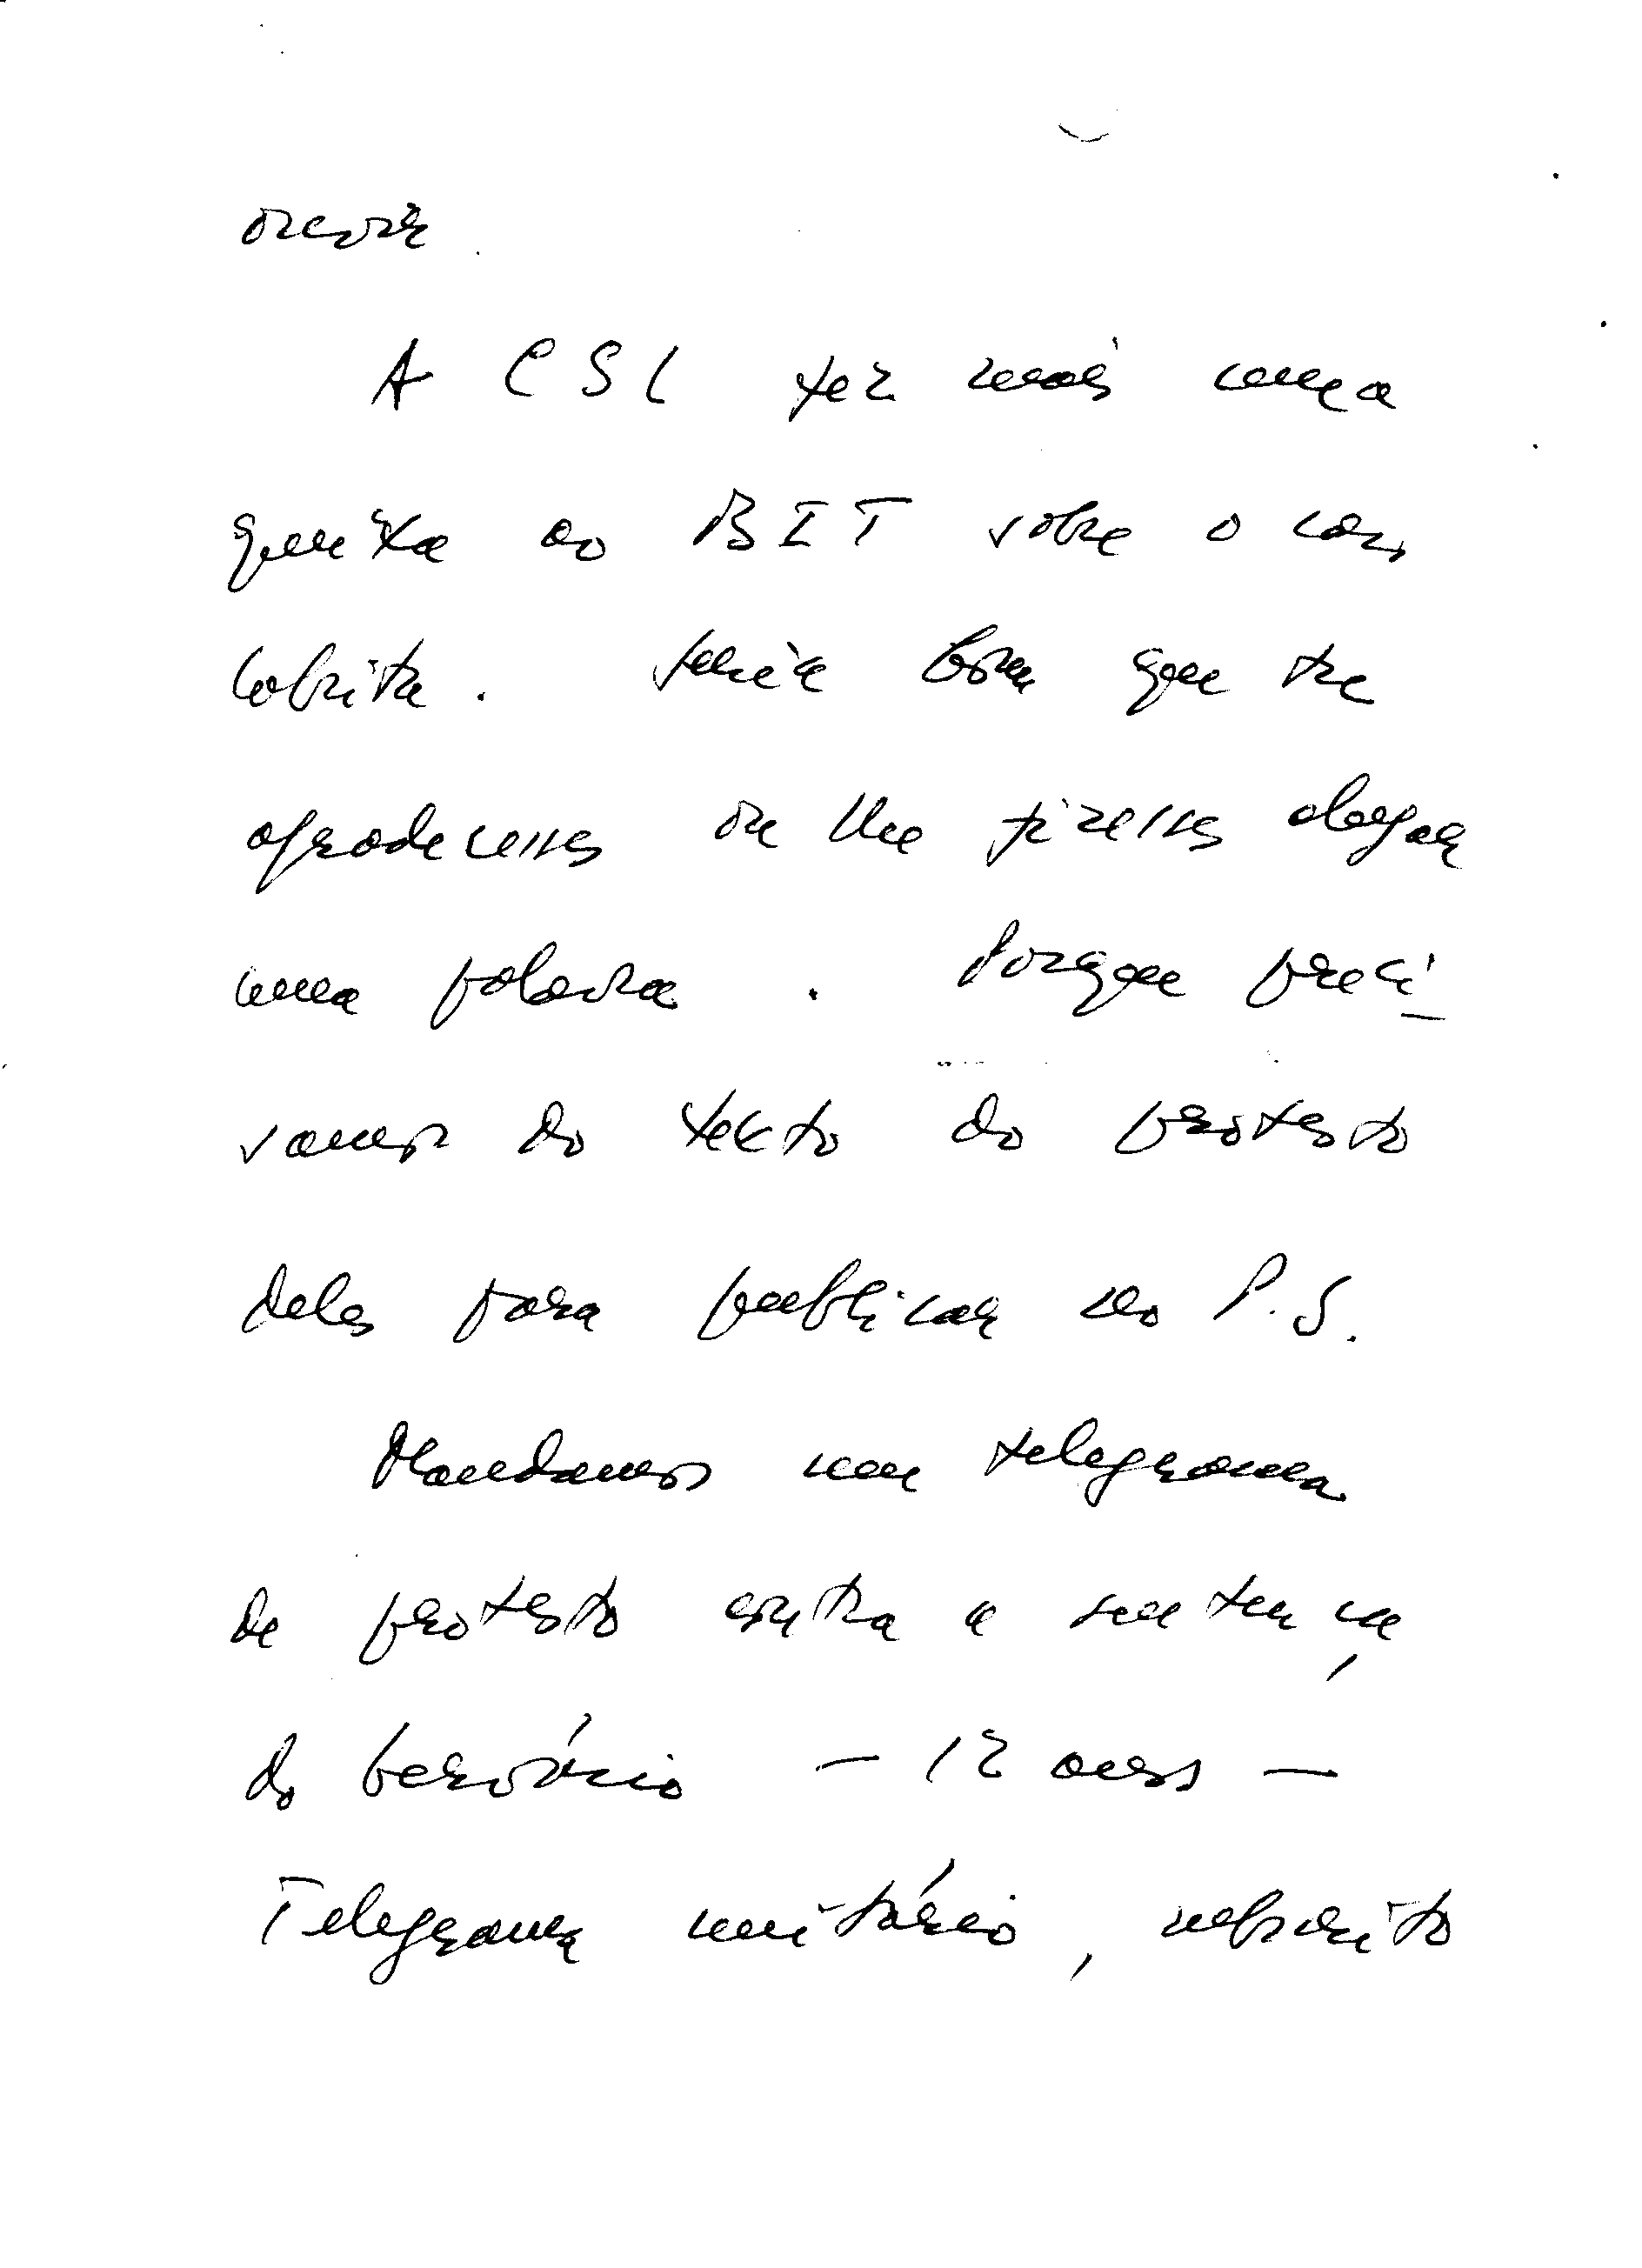 A CSL fez mais uma
queixa ao BIT sobre o caso
Cabrita. Seria bom que tu
agradecesses ou lhe fizesses chegar
uma palavra. Porque preci-
samos do texto do protesto
deles para publicar no P.S.
Mandamos um telegrama
de protesto contra a sentença
do Gervásio — 12 anos —
Telegrama unitário, subscrito